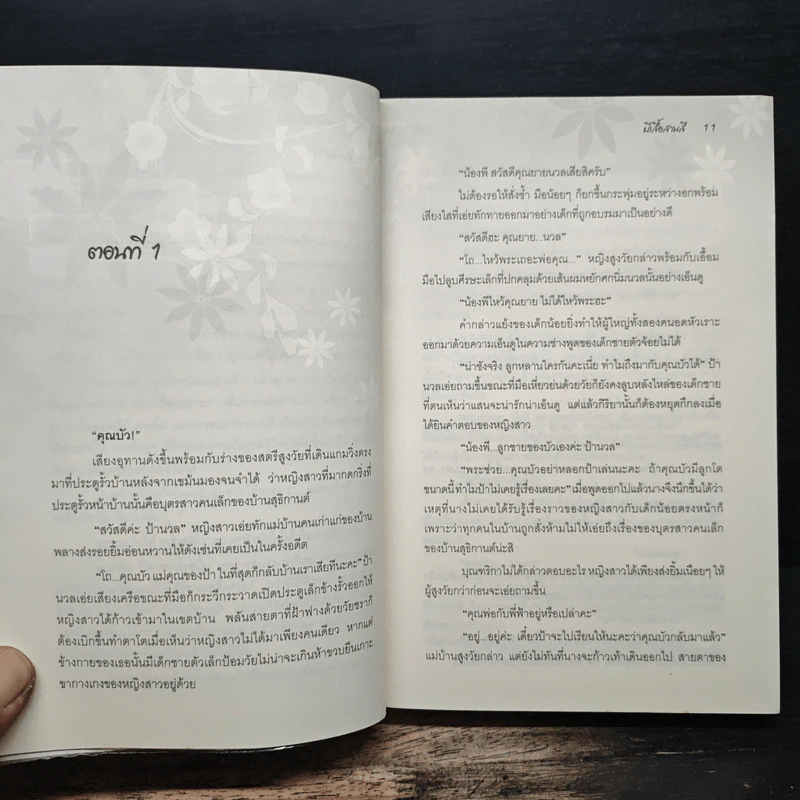 ตอนที่ 1
“คุณบัว!”
เสียงอุทานดังขึ้นพร้อมกับร่างของสตรีสูงวัยที่เดินแกมวิ่งตรง
มาที่ประตูรั้วบ้านหลังจากเขม้นมองจนจำได้ ว่าหญิงสาวที่มากดกริ่งที่
ประตูรั้วหน้าบ้านนั้นคือบุตรสาวคนเล็กของบ้านสุธิกานต์
“สวัสดีค่ะ ป้านวล” หญิงสาวเอ่ยทักแม่บ้านคนเก่าแก่ของบ้าน
พลางส่งรอยยิ้มอ่อนหวานให้ดังเช่นที่เคยเป็นในครั้งอดีต
“โถ...คุณบัว แม่คุณของป้า ในที่สุดก็กลับบ้านเราเสียทีนะคะ” ป้า
นวลเอ่ยเสียงเครือขณะที่มือก็กระวีกระวาดเปิดประตูเล็กข้างรั้วออกให้
หญิงสาวได้ก้าวเข้ามาในเขตบ้าน พลันสายตาที่ฝ้าฟางด้วยวัยชราก็
ต้องเบิกขึ้นทำตาโตเมื่อเห็นว่าหญิงสาวไม่ได้มาเพียงคนเดียว หากแต่
ข้างกายของเธอนั้นมีเด็กชายตัวเล็กป้อมวัยไม่น่าจะเกินห้าขวบยืนเกาะ
ขากางเกงของหญิงสาวอยู่ด้วย
ผีเสื้อสามสี 11
“น้องพี สวัสดีคุณยายนวลเสียสิครับ”
ไม่ต้องรอให้สั่งซ้ำ มือน้อยๆ ก็ยกขึ้นกระพุ่มอยู่ระหว่างอกพร้อม
เสียงใสที่เอ่ยทักทายออกมาอย่างเด็กที่ถูกอบรมมาเป็นอย่างดี
“สวัสดีฮะ คุณยาย...นวล”
“โถ...ไหว้พระเถอะพ่อคุณ...” หญิงสูงวัยกล่าวพร้อมกับเอื้อม
มือไปลูบศีรษะเล็กที่ปกคลุมด้วยเส้นผมหยักศกนิ่มนวลนั้นอย่างเอ็นดู
“น้องพีไหว้คุณยาย ไม่ได้ไหว้พระฮะ”
คำกล่าวแย้งของเด็กน้อยยิ่งทำให้ผู้ใหญ่ทั้งสองคนอดหัวเราะ
ออกมาด้วยความเอ็นดูในความช่างพูดของเด็กชายตัวจ้อยไม่ได้
“น่าชังจริง ลูกหลานใครกันคะเนี่ย ทำไมถึงมากับคุณบัวได้” ป้า
นวลเอ่ยถามขึ้นขณะที่มือเหี่ยวย่นด้วยวัยก็ยังคงลูบหลังไหล่ของเด็กชาย
ที่ตนเห็นว่าแสนจะน่ารักน่าเอ็นดู แต่แล้วกิริยานั้นก็ต้องหยุดกึกลงเมื่อ
ได้ยินคำตอบของหญิงสาว
“น้องพี...ลูกชายของบัวเองค่ะ ป้านวล”
“พระช่วย...คุณบัวอย่าหลอกป้าเล่นนะคะ ถ้าคุณบัวมีลูกโต
ขนาดนี้ทำไมป้าไม่เคยรู้เรื่องเลยคะ” เมื่อพูดออกไปแล้วนางจึงนึกขึ้นได้ว่า
เหตุที่นางไม่เคยได้รับรู้เรื่องราวของหญิงสาวกับเด็กน้อยตรงหน้าก็
เพราะว่าทุกคนในบ้านถูกสั่งห้ามไม่ให้เอ่ยถึงเรื่องของบุตรสาวคนเล็ก
ของบ้านสุธิกานต์น่ะสิ
บุณฑริกาไม่ได้กล่าวตอบอะไร หญิงสาวได้เพียงส่งยิ้มเนือยๆ ให้
ผู้สูงวัยกว่าก่อนจะเอ่ยถามขึ้น
“คุณพ่อกับพี่ฟ้าอยู่หรือเปล่าคะ”
“อยู่...อยู่ค่ะ เดี๋ยวป้าจะไปเรียนให้นะคะว่าคุณบัวกลับมาแล้ว”
แม่บ้านสูงวัยกล่าว แต่ยังไม่ทันที่นางจะก้าวเท้าเดินออกไป สายตาของ